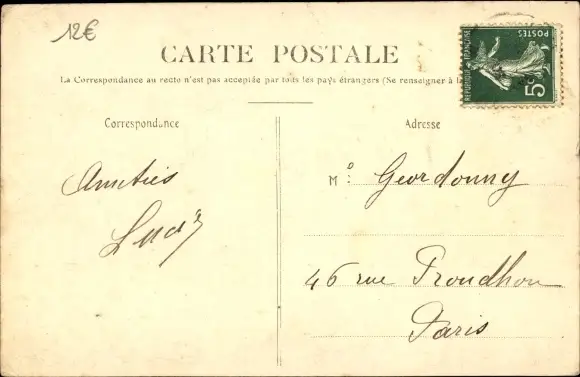 12€
CARTE POSTALE
La Correspondance au recto n'est pas acceptée par tous les pays étrangers (Se renseigner à la
REPUBLIQUE FRANÇAISE
POSTES
5c
Correspondance
Adresse
Amitiés
M
46 rue Proudhon
Paris